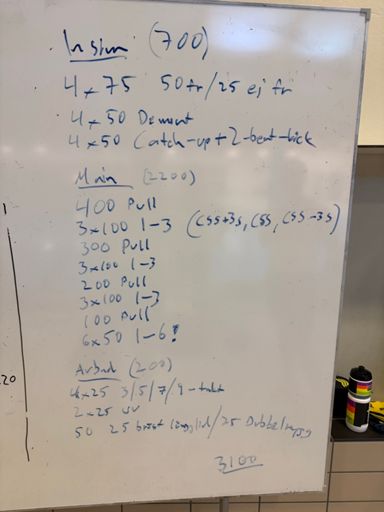 Insim (700)
4x75 50fr/25 ej fr
4x50
4x50 Catch-up + 2-beat-kick
Main (2200)
400 Pull
3x100 1-3 (CSS+3s, CSS, CSS-3s)
300 Pull
3x100 1-3
200 Pull
3x100 1-3
100 Pull
6x50 1-6!
(200)
4x25 3/5/7/9-takt
2x25 uv
50 25 bröst /25 Dubbelrygg
3100
20